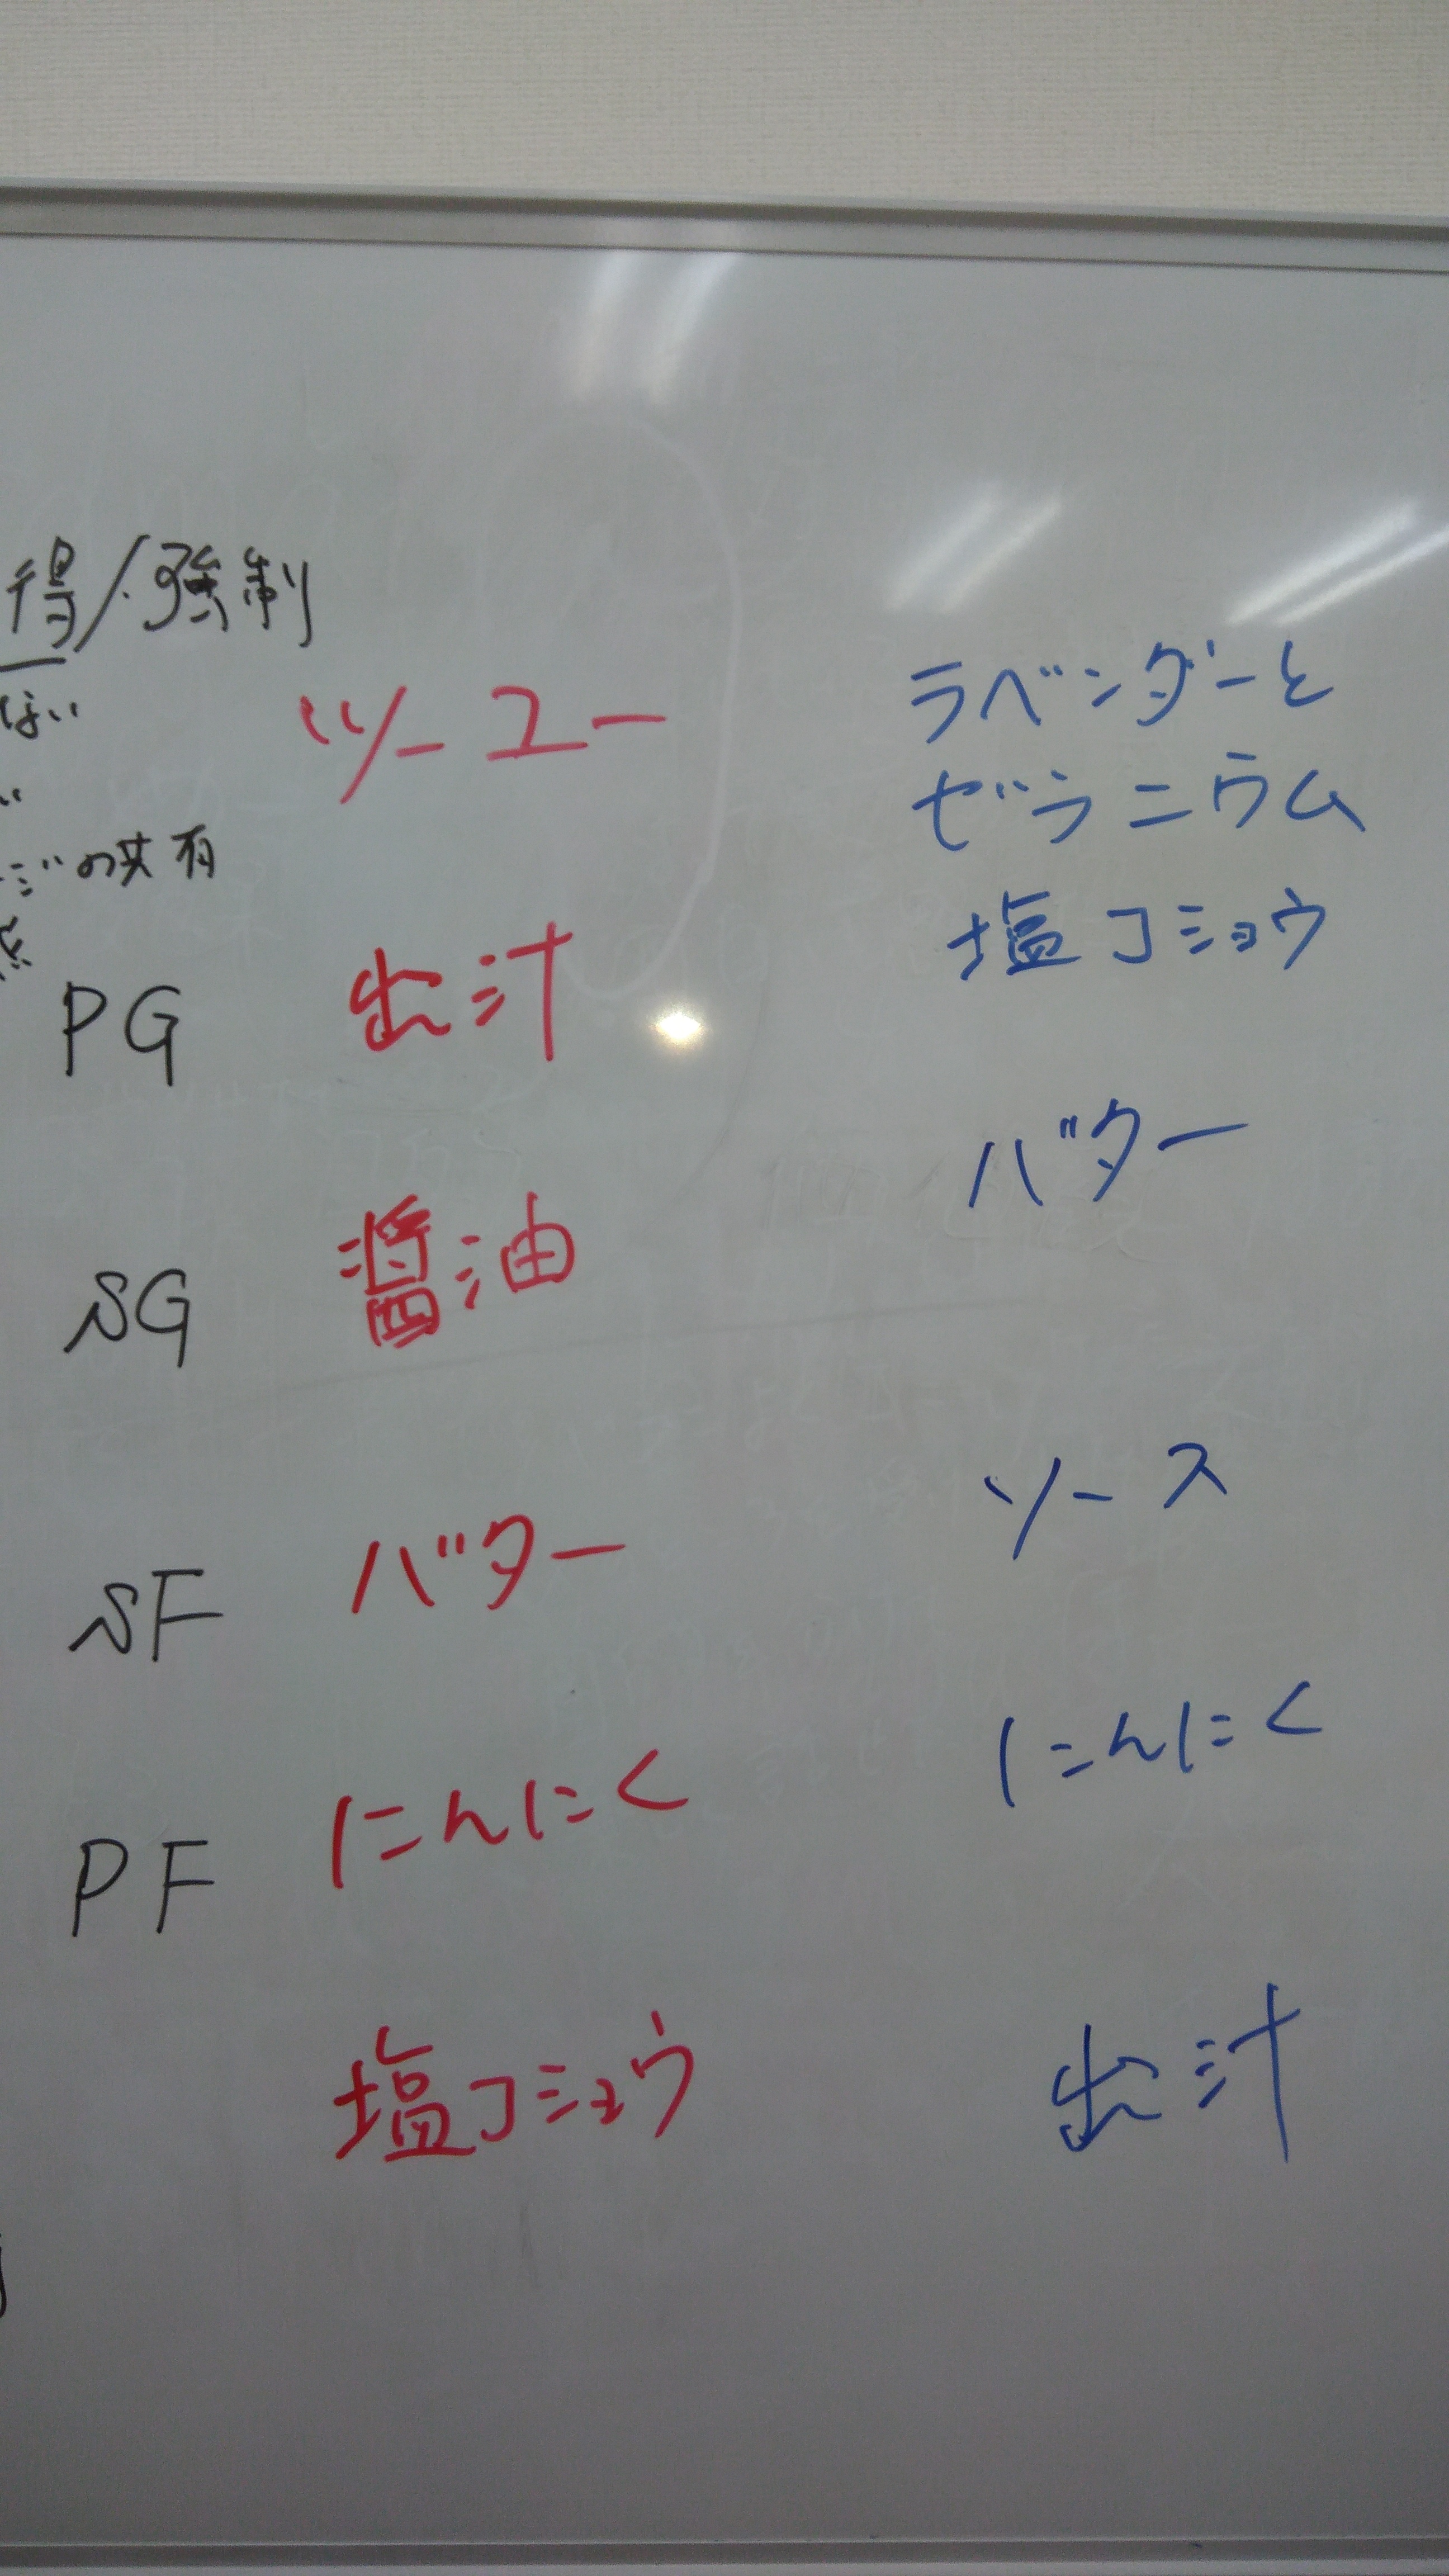 得/強制
ない
ジの共有
ツーユー
ラベンダーと
ゼラニウム
塩コショウ
PG 出汁
バター
SG 醤油
ソース
SF バター
にんにく
PF にんにく
塩コショウ
出汁